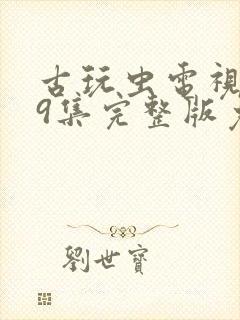 古玩虫電視
9集完整版
劉世寶